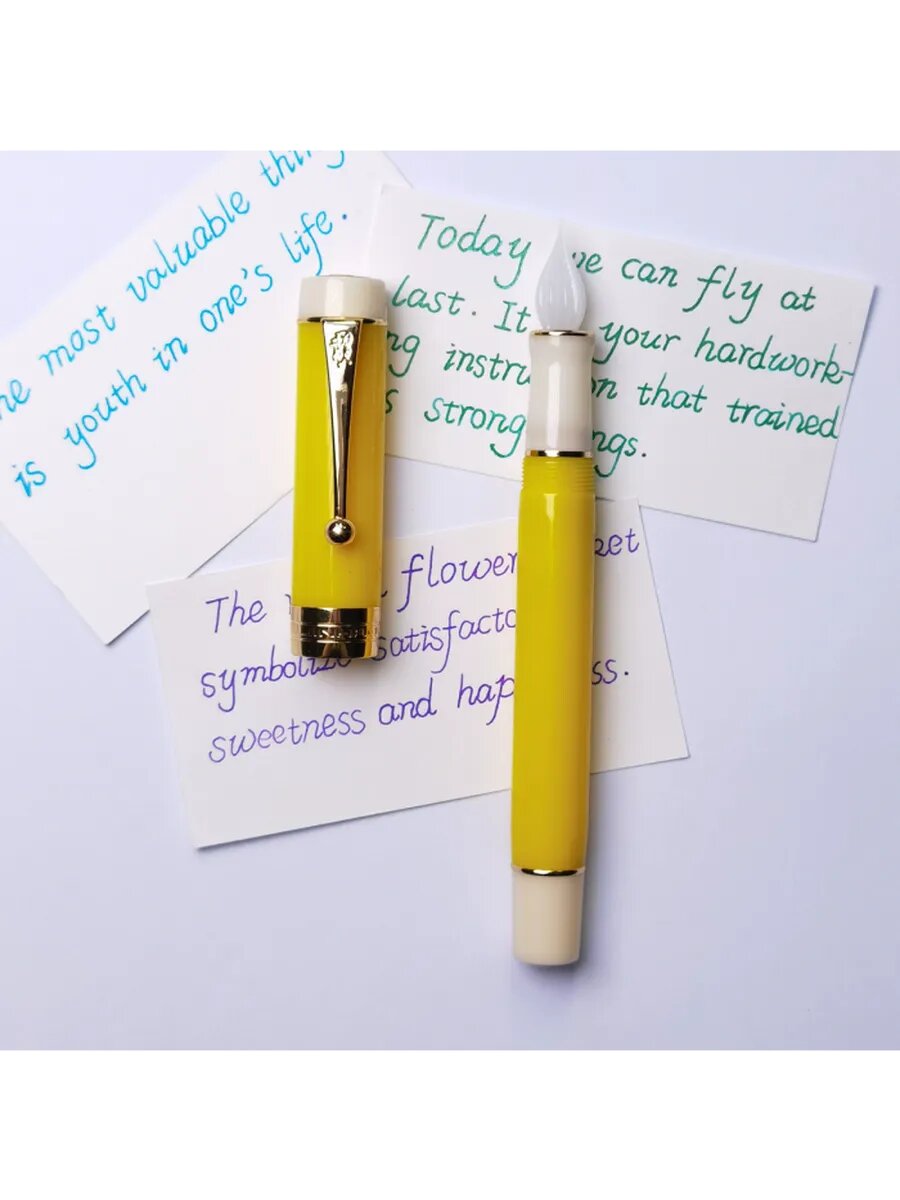 most valuable
is youth in one's life.
Today we can fly at
last. It your hardwork-
that trained
strong
The flower
symbolize satisfacto
sweetness and hap